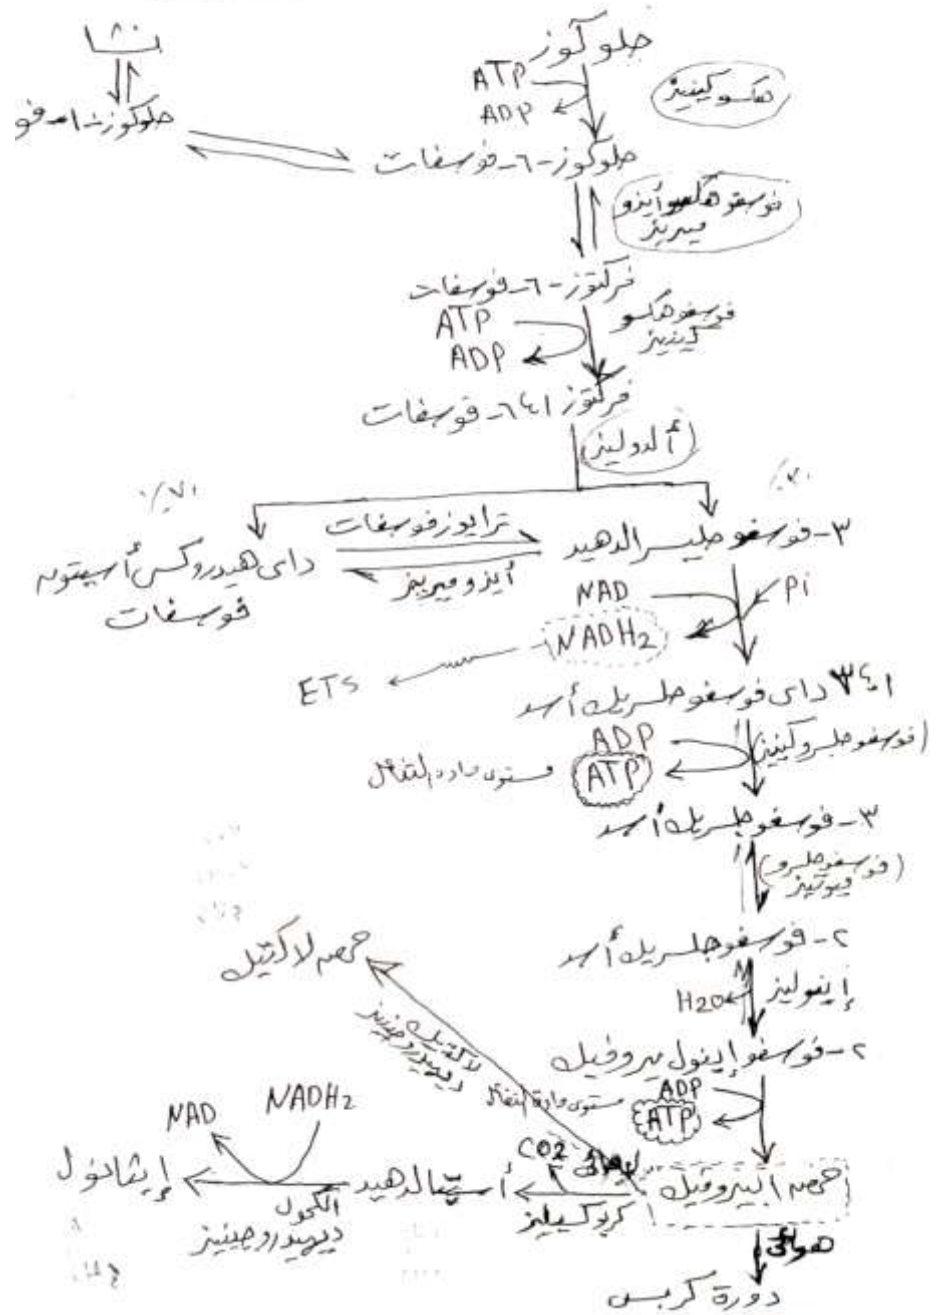 نشا
جلوكوز
ATP
ADP
هكسوكينيز
جلوكوز-١-فو
جلوكوز-٦-فوسفات
فوسفوهكسوأيزو
ميريز
فركتوز-٦-فوسفات
ATP
ADP
فوسفوهكسو
كينيز
فركتوز ١،٦-فوسفات
ألدوليز
٣-فوسفوجليسرالدهيد
ترايوزفوسفات
أيزوميريز
داى هيدروكس أسيتون
فوسفات
NAD
Pi
NADH2
ETS
١،٣ داى فوسفو جلسريك أسد
(فوسفوجلسروكينيز)
ADP
ATP
مستوى مادة التفاعل
٣-فوسفوجلسريك أسد
(فوسفوجلسرو
ميوتيز)
٢-فوسفوجلسريك أسد
إينوليز
H2O
٢-فوسفو إينول بيروفيك
ADP
ATP
مستوى مادة التفاعل
حمض لاكتيك
لاكتيك
ديهيدروجينيز
حمض البيروفيك
لاهوائى
CO2
كربوكسيليز
أسيتالدهيد
NADH2
NAD
الكحول
ديهيدروجينيز
إيثانول
هوائى
دورة كربس